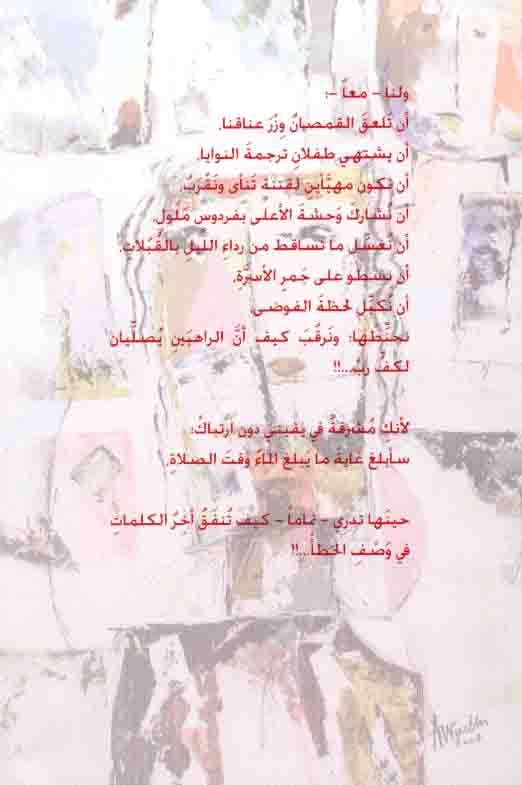 ولنا - معاً -:
أن تلعقَ القمصانُ وِزْرَ عناقنا.
أن يشتهي طفلانِ ترجمةَ النوايا.
أن نكون مهيَّأينِ لفتنةٍ تنأى وتَقْرَبُ.
أن نشارك وَحشةَ الأعلى بفردوس مَلُولٍ.
أن نغسل ما تساقط من رداءِ الليلِ بالقُبُلاتِ.
أن نسطو على جَمرِ الأسِرَّةِ.
أن نُكبِّل لحظةَ الفوضى.
نحنِّطَها: ونَرقُبَ كيف أنَّ الراهبَينِ يُصلِّيان
لكفِّ ربٍّ...!!
لأنكِ مُشرقةٌ في يقيني دون ارْتباكٍ:
سأبلغ غايةَ ما يَبلغ الماءُ وَقتَ الصلاةِ.
حينَها تدري - تماماً - كيف تُنفَقُ آخِرُ الكلماتِ
في وَصْفِ الخطأ...!!